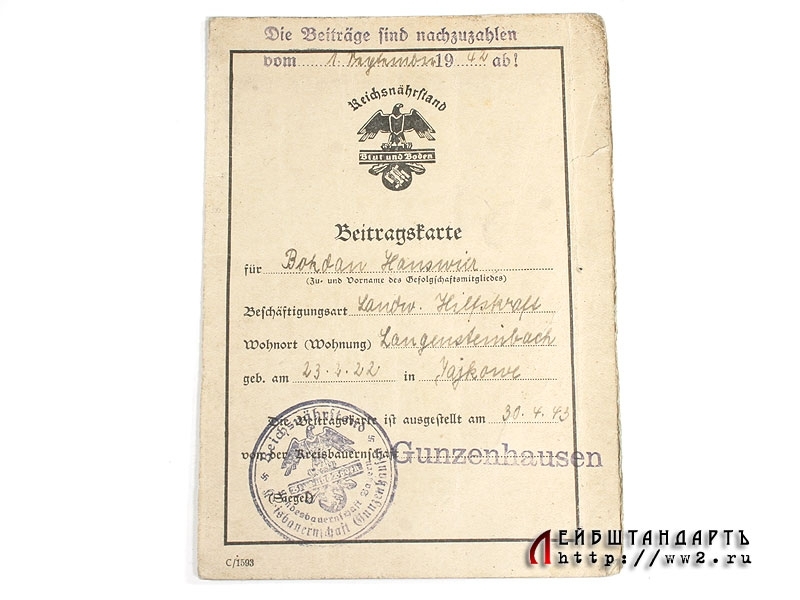 Die Beiträge sind nachzuzahlen
vom 1. September 1942 ab!
Reichsnährstand
Blut und Boden
Beitragskarte
für Bohdan
(Zu- und Vorname des Gefolgschaftsmitgliedes)
Beschäftigungsart Landw. Hilfskraft
Wohnort (Wohnung) Langensteinbach
geb. am 23.2.22 in
Die Beitragskarte ist ausgestellt am 30.4.43
von der Kreisbauernschaft Gunzenhausen
(Siegel)
Reichsnährstand
Landesbauernschaft
Kreisbauernschaft Gunzenhausen
C/1593
ЛЕЙБШТАНДАРТЪ
http://ww2.ru